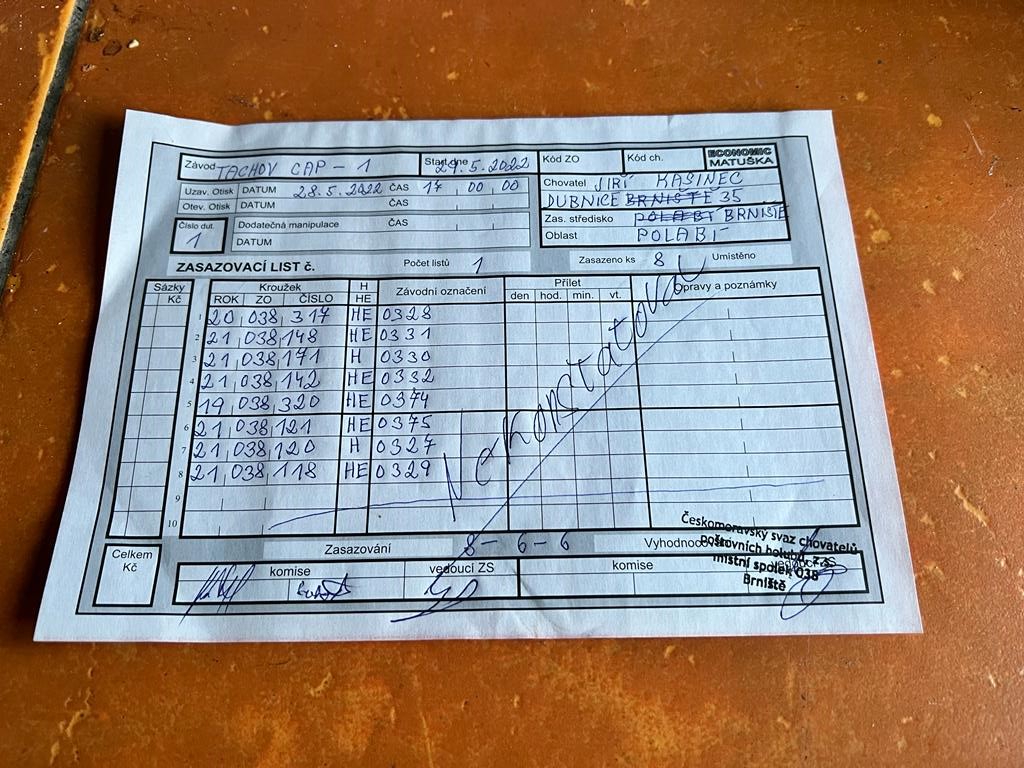 Závod TACHOV CAP - 1 Start dne 29.5.2022 Kód ZO Kód ch. ECONOMIC MATUŠKA
Uzav. Otisk DATUM 28.5.2022 ČAS 17 00 00
Otev. Otisk DATUM ČAS
Chovatel JIŘÍ KAŠINEC
DUBNICE BRNIŠTĚ 35
Číslo dut. 1 Dodatečná manipulace ČAS
DATUM
Zas. středisko POLABÍ BRNIŠTĚ
Oblast POLABÍ
ZASAZOVACÍ LIST č. Počet listů 1 Zasazeno ks 8 Umístěno
Sázky Kč Kroužek ROK ZO ČÍSLO H HE Závodní označení Přílet den hod. min. vt. Opravy a poznámky
1 20 038 317 HE 0328
2 21 038 148 HE 0331
3 21 038 171 H 0330
4 21 038 142 HE 0332
5 19 038 320 HE 0374
6 21 038 121 HE 0375
7 21 038 120 H 0327
8 21 038 118 HE 0329
9
10
Nekonštatoval
Celkem Kč Zasazování 8-6-6 Vyhodnoc
komise vedoucí ZS komise
Českomoravský svaz chovatelů
poštovních holubů, z.s.
místní spolek 038
Brniště